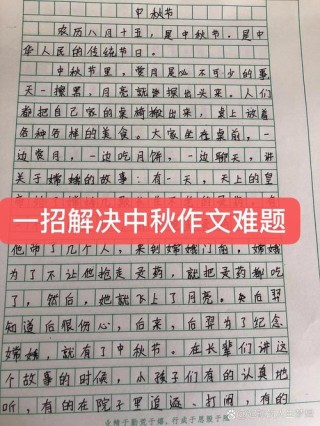 中秋节
农历八月十五，是中秋节。是中
华人民的传统节日。
中秋节里，赏月是必不可少的事，
天一擦黑，月亮就爬出头来。人们
都把自己家的桌椅搬出来，桌上放着
各种各样的美食。大家坐在桌前，一
边赏月，一边吃月饼，一边聊天，讲
关于嫦娥的故事：有一天，天上的皇
一招解决中秋作文难题
他带了几个人，来到嫦娥门前，嫦娥
为了不让他抢走灵药，就把灵药都吃
了，然后，她就飞上了月亮。后羿
知道后很伤心，后来，后羿为了纪念
嫦娥，就有了中秋节。在长辈们讲这
个故事的时候，小孩子们有的认真地
听，有的在院子里追逐、打闹，有的
业精于勤荒于嬉，行成于思毁于随